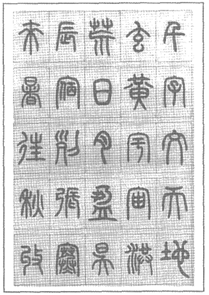 千字文天地
玄黃宇宙洪
荒日月盈昃
辰宿列張寒
來暑往秋收